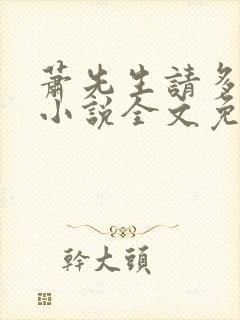 蕭先生請多
小說全文免
幹大頭